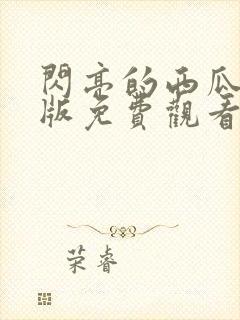 閃亮的西瓜
版免費觀看
荣睿